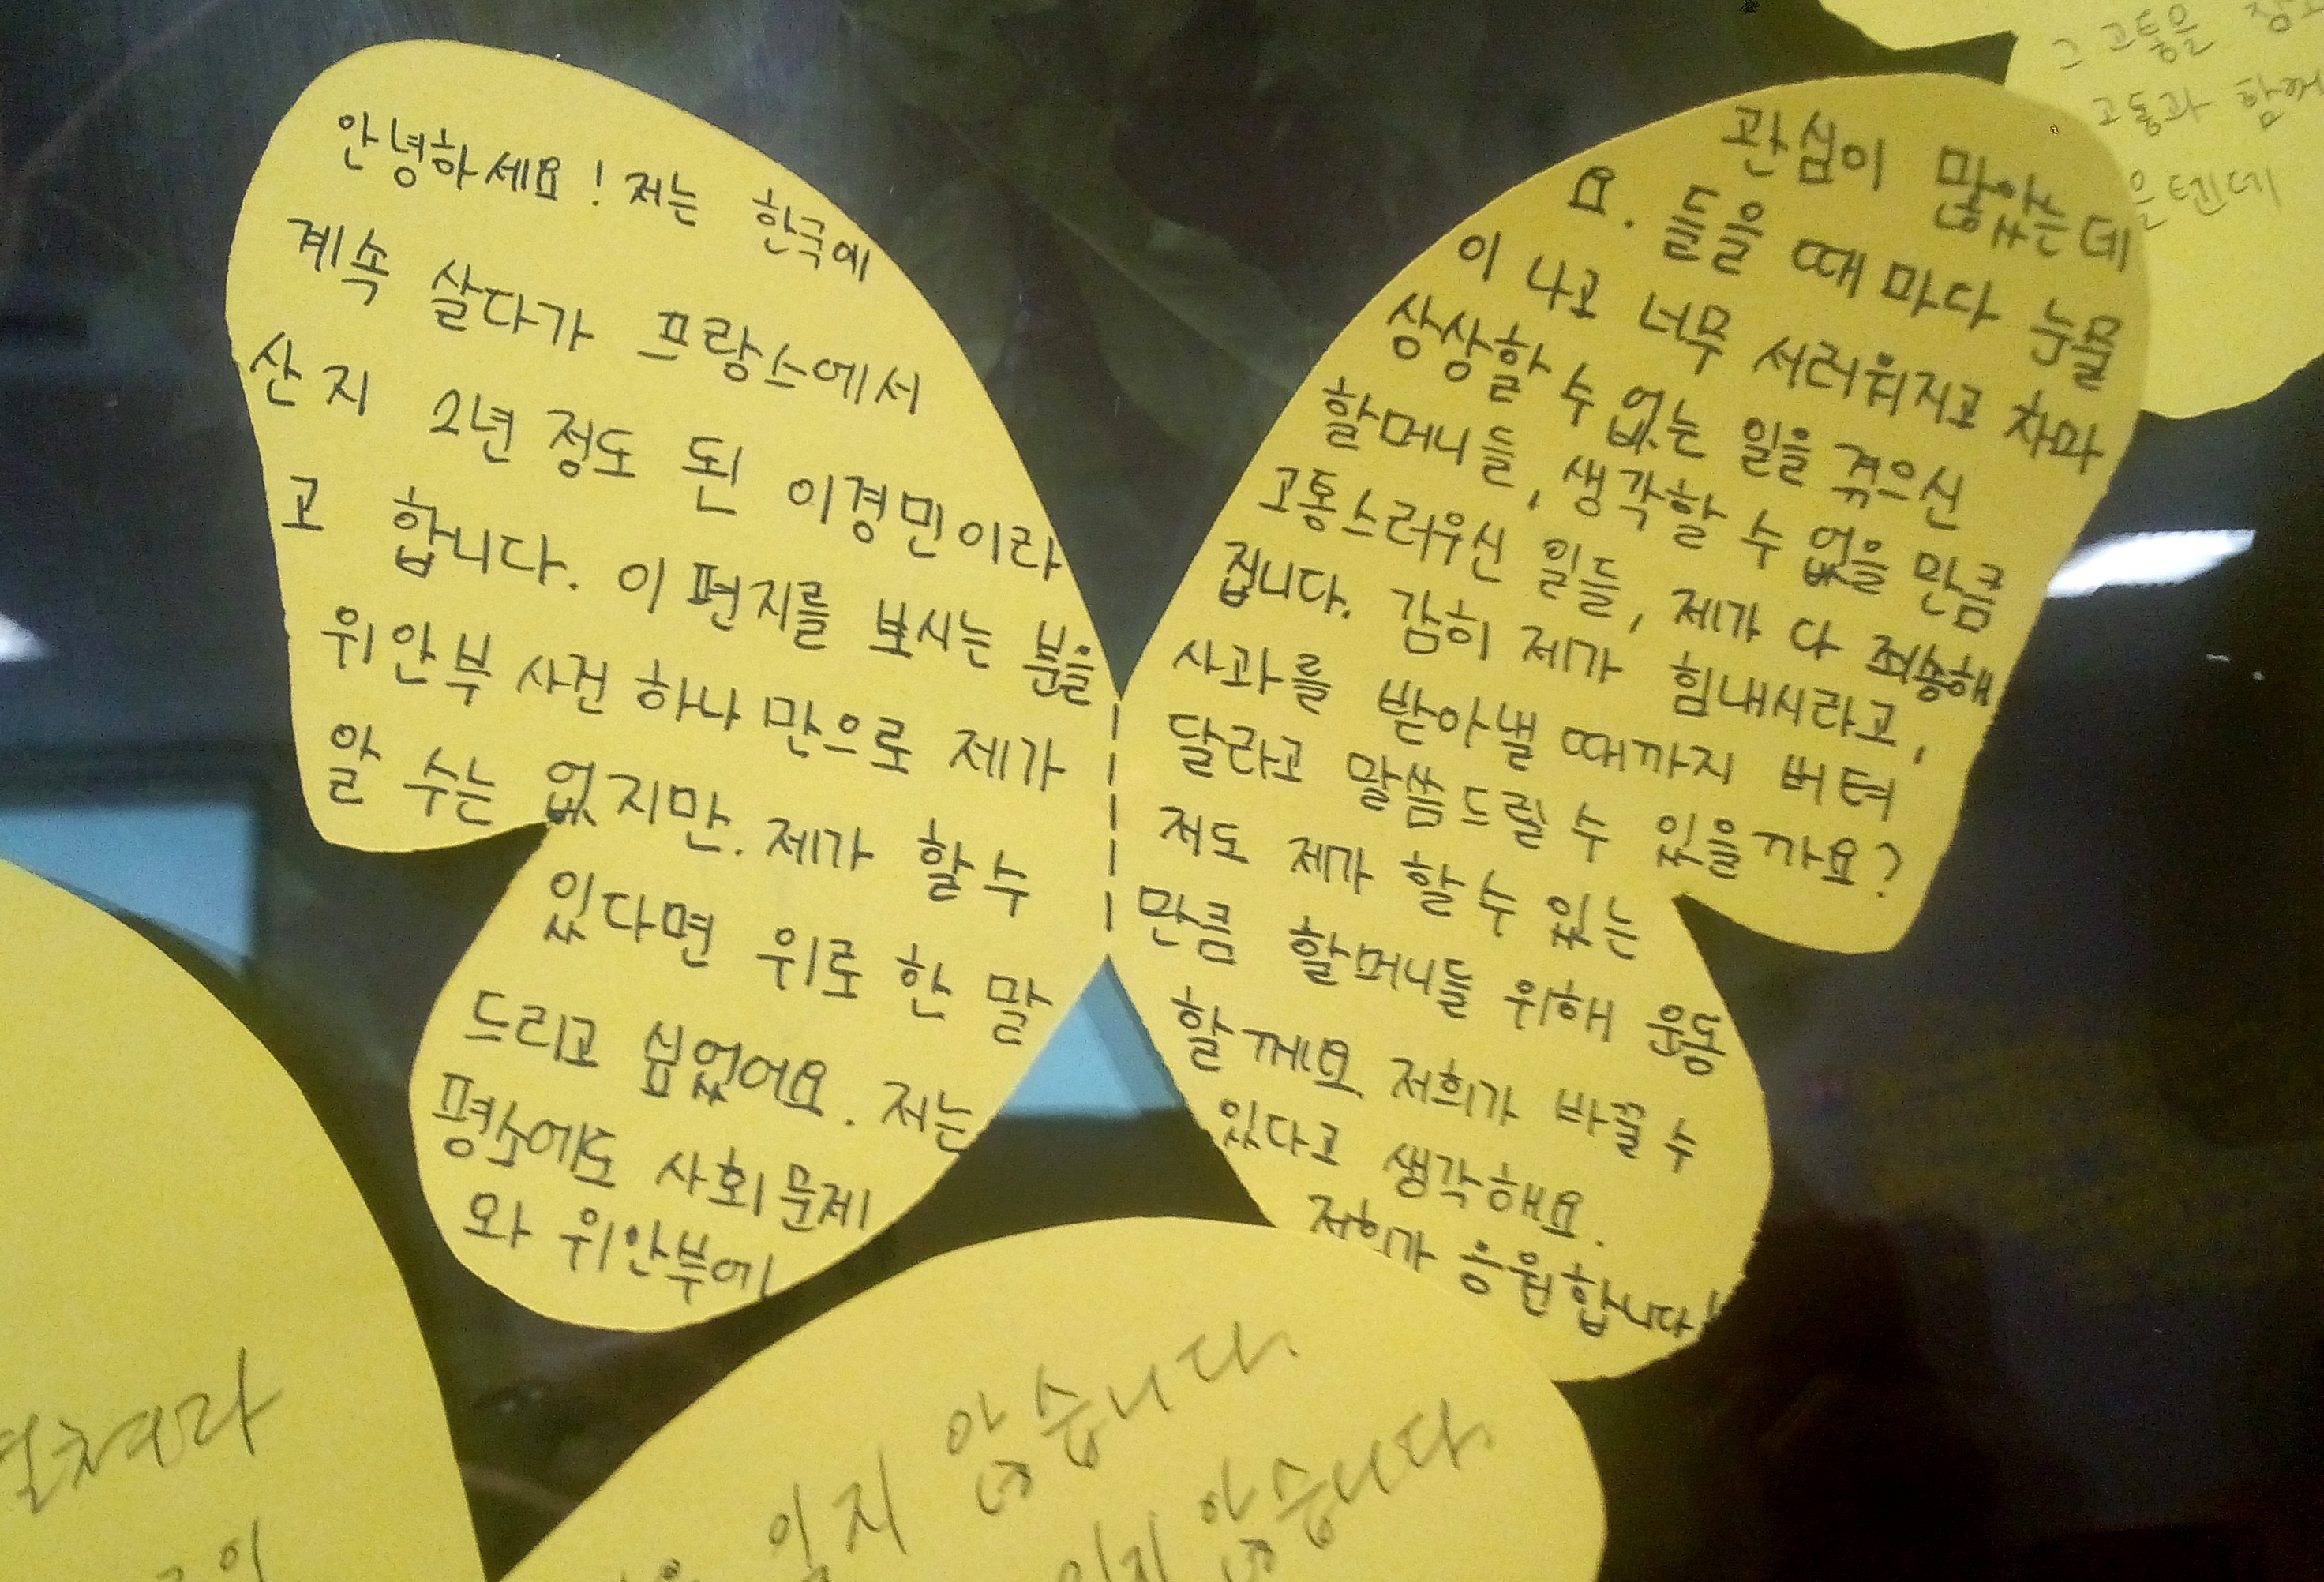 안녕하세요! 저는 한국에
계속 살다가 프랑스에서
산지 2년 정도 된 이경민이라
고 합니다. 이 편지를 보시는 분을
위안부 사건 하나 만으로 제가
알 수는 없지만. 제가 할 수
있다면 위로 한 말
드리고 싶었어요. 저는
평소에도 사회문제
와 위안부에
관심이 많았는데
요. 들을 때마다 눈물
이 나고 너무 서러워지고 차마
상상할 수 없는 일을 겪으신
할머니들, 생각할 수 없을 만큼
고통스러우신 일들, 제가 다 죄송해
집니다. 감히 제가 힘내시라고,
사과를 받아낼 때까지 버텨
달라고 말씀드릴 수 있을까요?
저도 제가 할 수 있는
만큼 할머니들 위해 운동
할께요 저희가 바꿀 수
있다고 생각해요.
저희가 응원합니다!
그 고통을
고통과 함께
은텐데
잊지 않습니다.
잊지 않습니다.